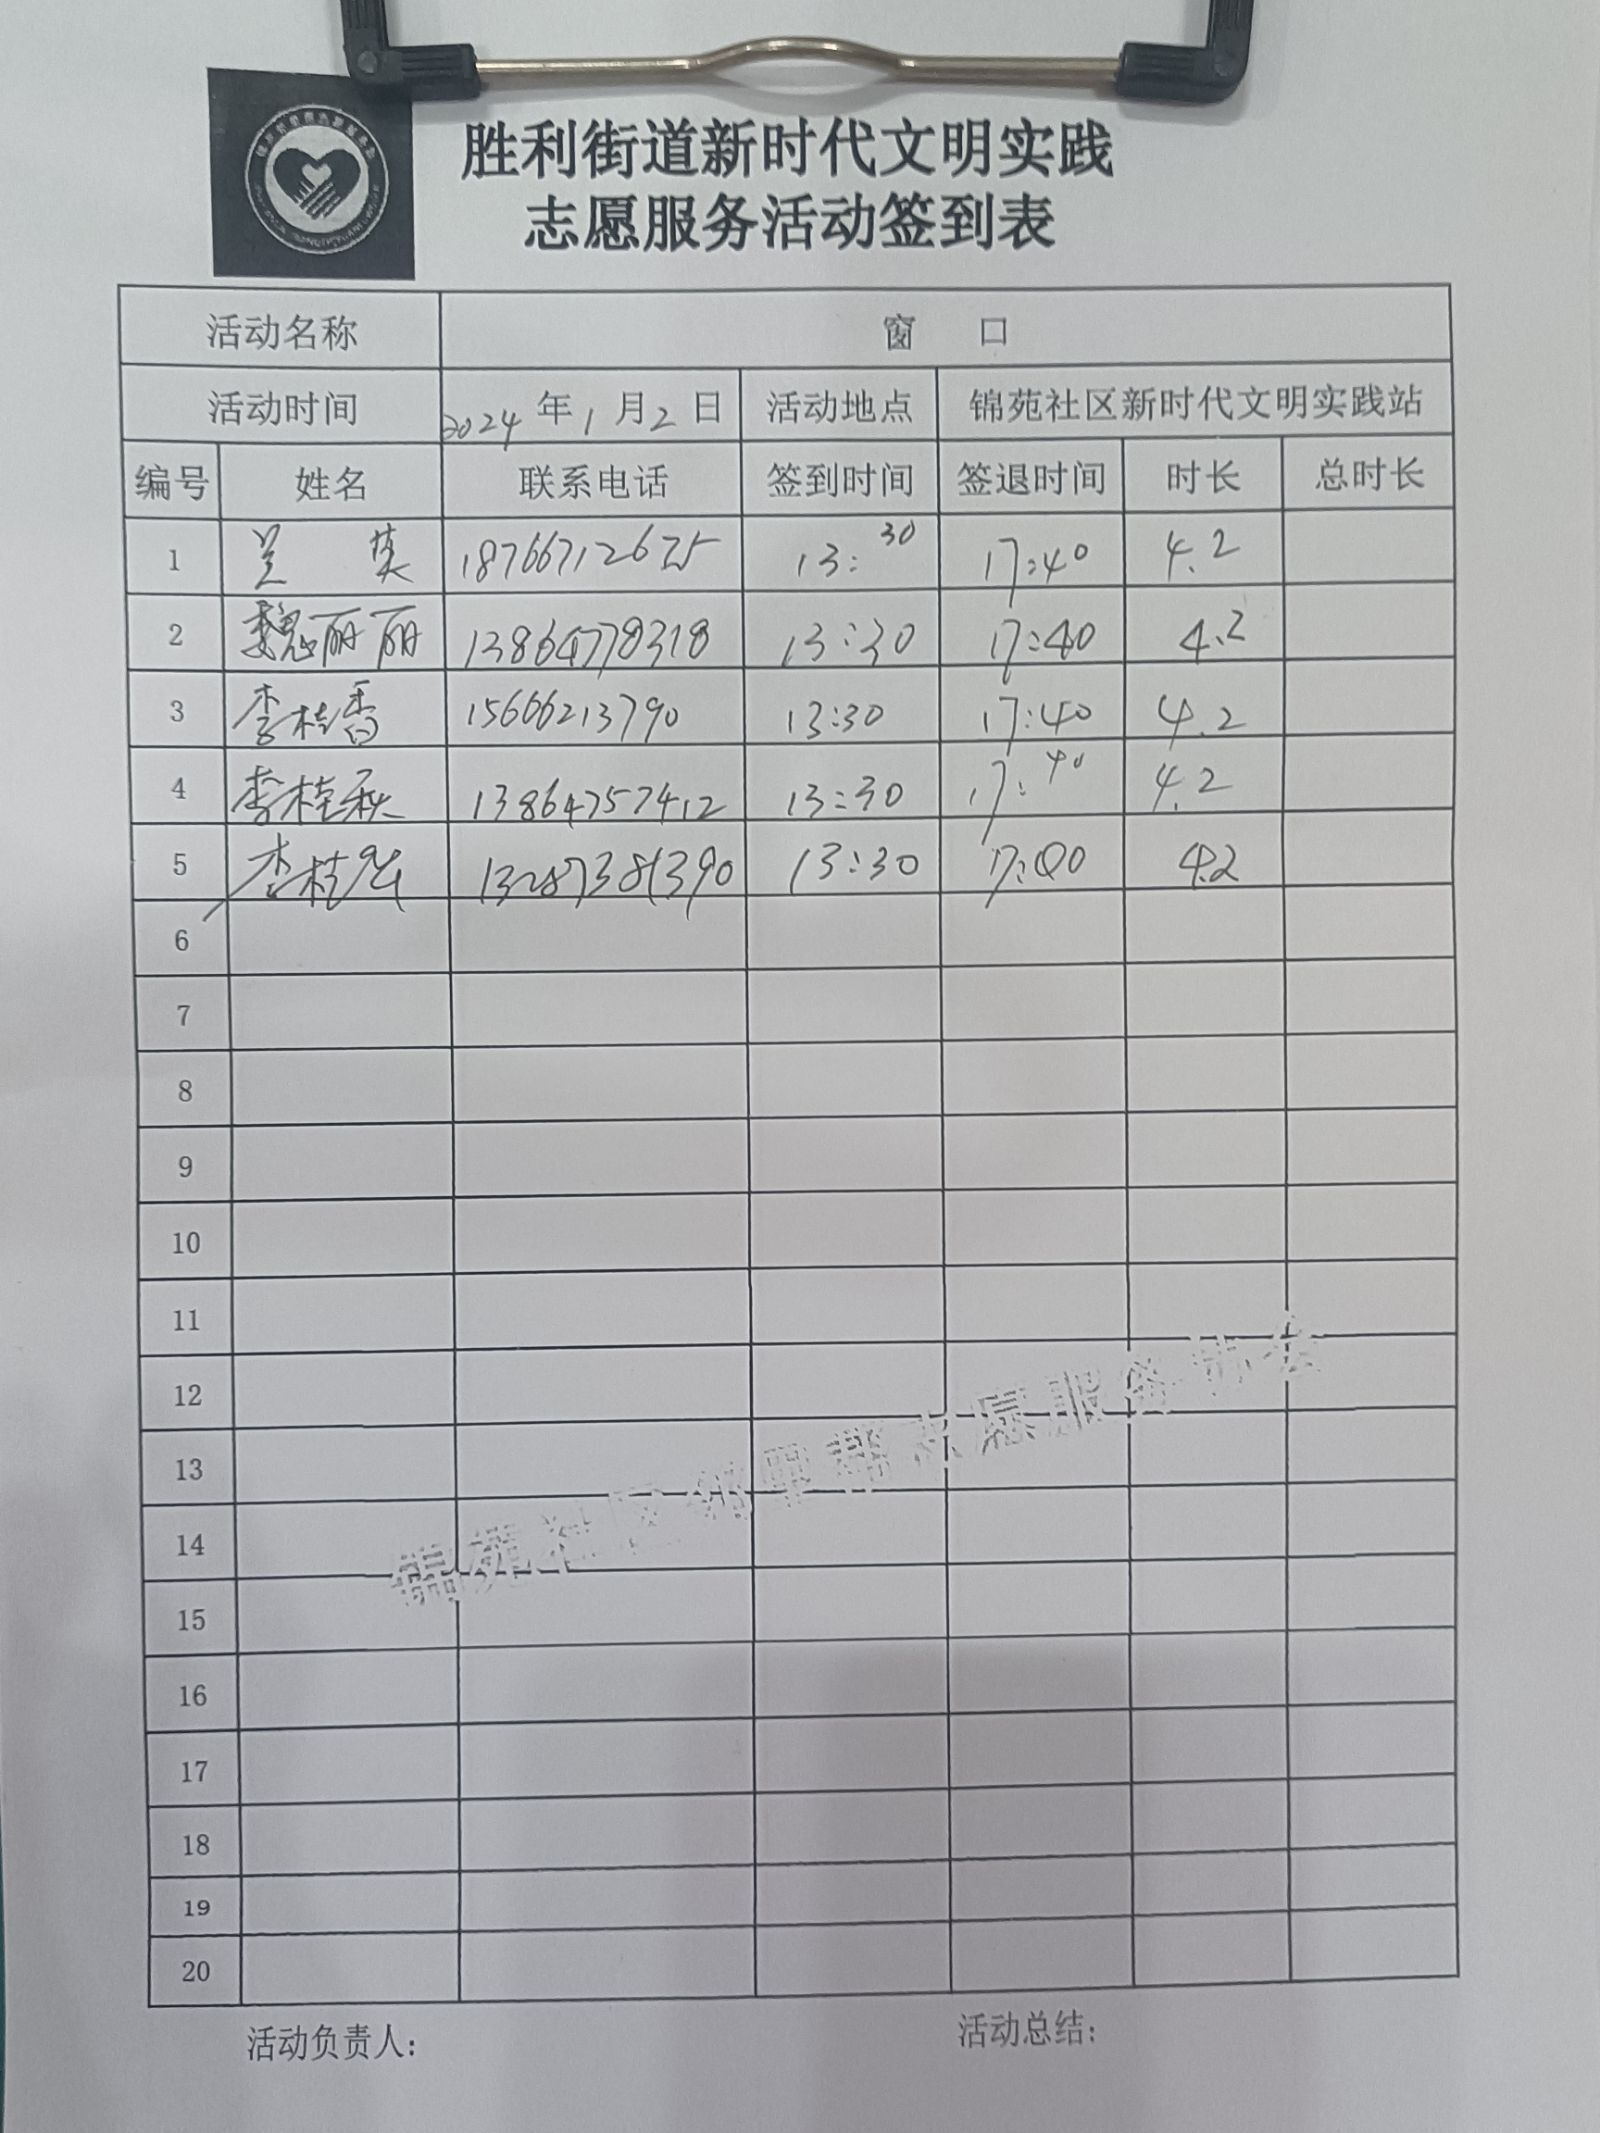 胜利街道新时代文明实践
志愿服务活动签到表
活动名称 窗 口
活动时间 2024 年 1 月 2 日 活动地点 锦苑社区新时代文明实践站
编号 姓名 联系电话 签到时间 签退时间 时长 总时长
1 兰 英 18766712675 13:30 17:40 4.2
2 魏丽丽 13864778318 13:30 17:40 4.2
3 李桂香 15666213790 13:30 17:40 4.2
4 李桂秋 13864757412 13:30 17:40 4.2
5 李桂 13287381390 13:30 17:40 4.2
6
7
8
9
10
11
12
13
14
15
16
17
18
19
20
锦苑社区邻里帮志愿服务协会
活动负责人: 活动总结: